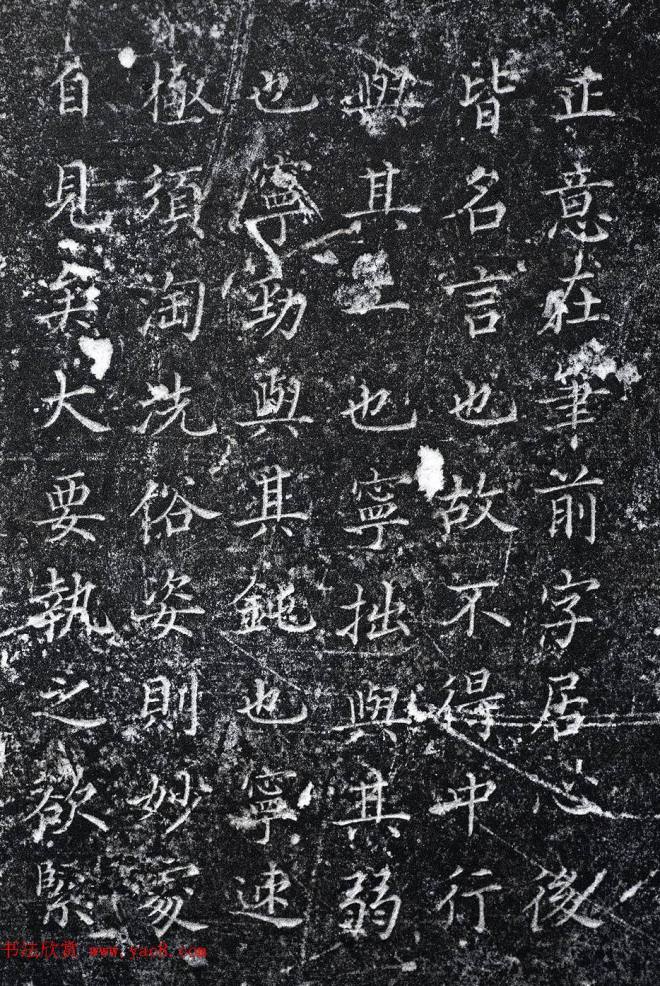 正意在筆前字居心後
皆名言也故不得中行
與其工也寧拙與其弱
也寧勁與其鈍也寧速
極須淘洗俗姿則妙處
自見矣大要執之欲緊
书法欣赏 www.yac8.com